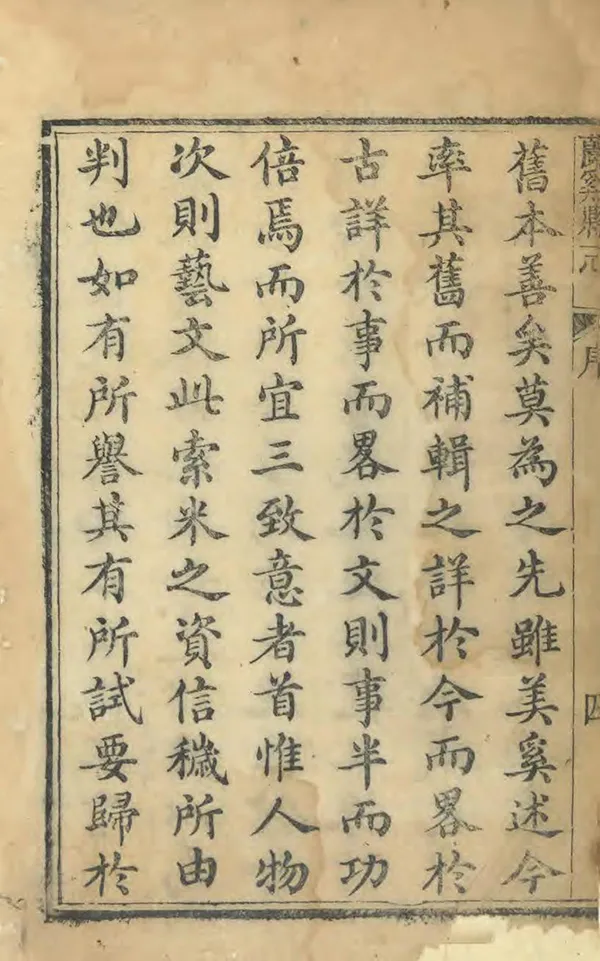 蘭谿縣志
序
四
舊本善矣莫為之先雖美奚述今
率其舊而補輯之詳於今而畧於
古詳於事而畧於文則事半而功
倍焉而所宜三致意者首惟人物
次則藝文此索米之資信穢所由
判也如有所譽其有所試要歸於